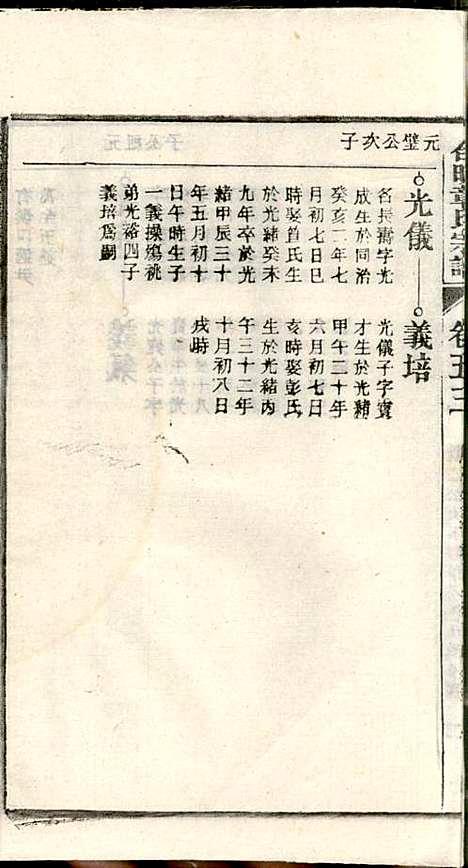 元璧公次子
光儀
名長壽字光
成生於同治
癸亥二年七
月初七日巳
時娶首氏生
於光緒癸未
九年卒於光
緒甲辰三十
年五月初十
日午時生子
一義操殤祧
弟光裕四子
義培為嗣
義培
光儀子字寶
才生於光緒
甲午二十年
六月初七日
亥時娶彭氏
生於光緒丙
午三十二年
十月初八日
戌時
章氏宗譜
卷五三